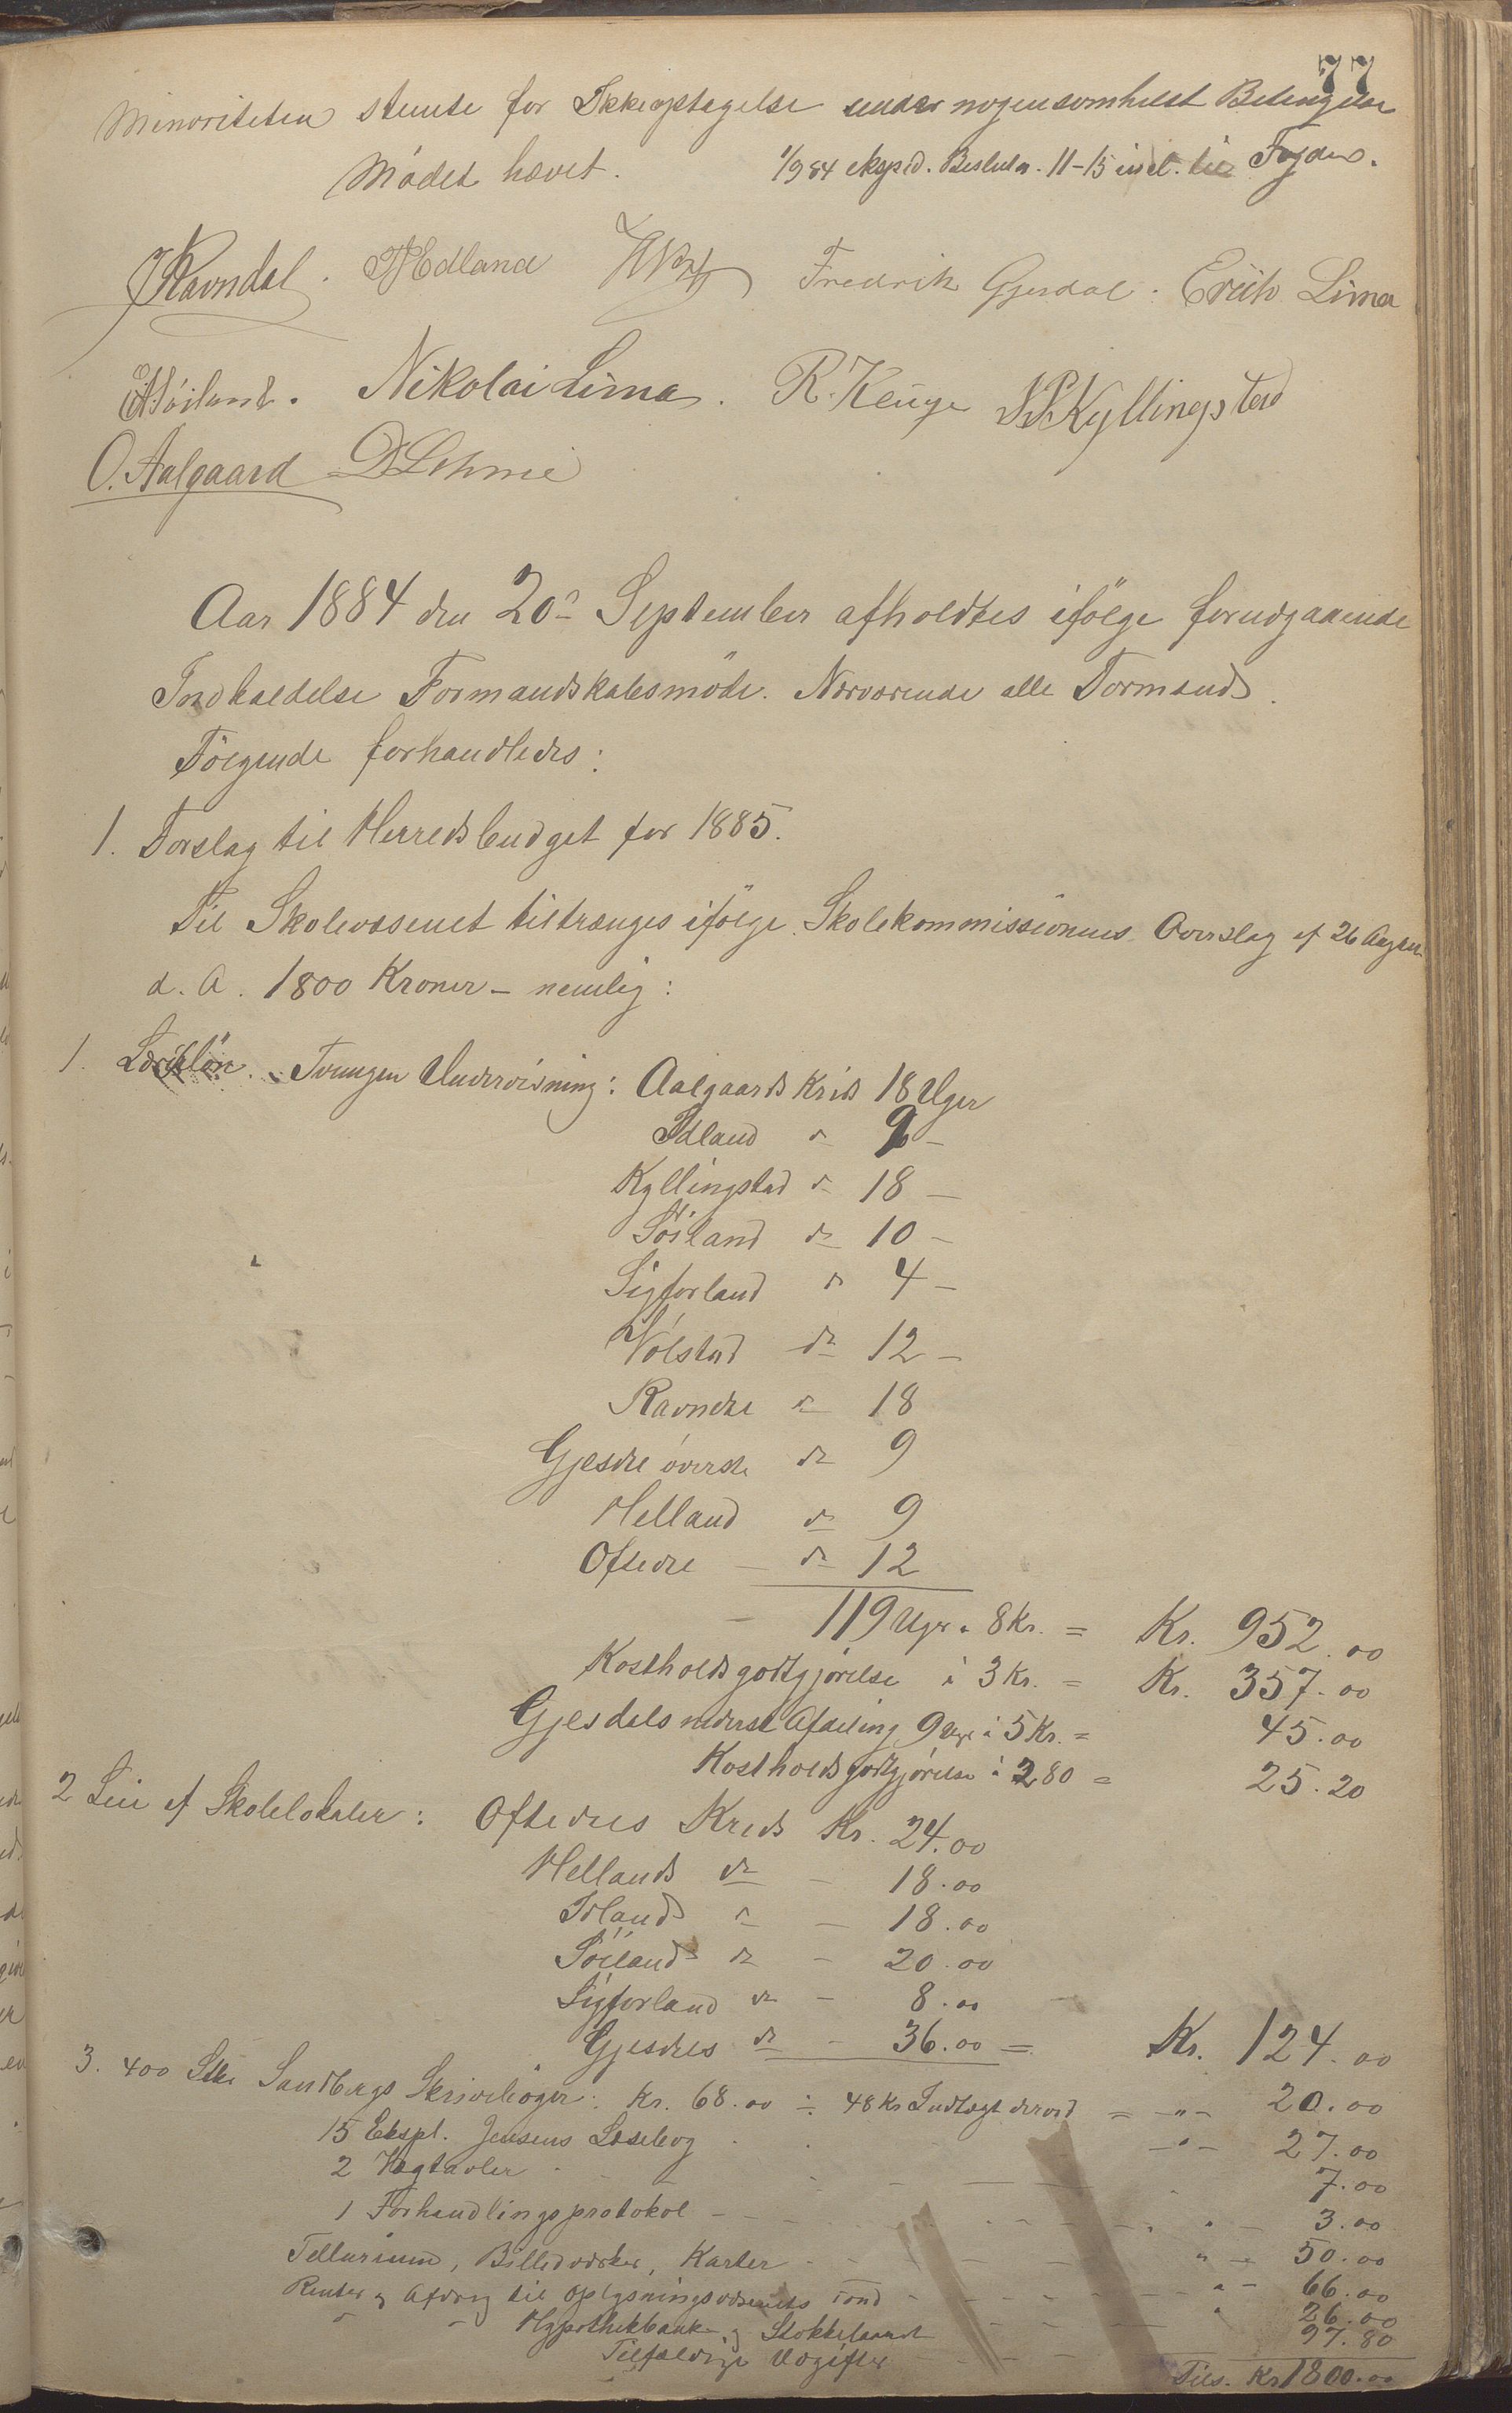 77
Minoriteten stemte for Ikkeoptagelse under nogensomhelst Betingelse
Mödet hævet. 1/9 84 exped. Beslutn. 11-15 incl. til Fogden.
J Ravndal. T Edland Fredrik Gjesdal. Erik Lima
Söiland. Nikolai Lima. R. Kenge S P Kyllingstad
O. Aalgaard D Lehme
Aar 1884 den 20de September afholdtes ifölge forudgaaende
Indkaldelse Formandskabsmöde. Nærværende alle Formænd.
Fölgende forhandledes:
1. Forslag til Herredsbudget for 1885.
Til Skolevæsenet tiltrænges ifölge Skolekommissionens Overslag af 26 August
d. A. 1800 Kroner - nemlig:
1. Lærerlön. Tvungen Undervisning: Aalgaards Kreds 18 Uger
Idland do 9 -
Kyllingstad do 18 -
Söiland do 10 -
Sigforland do 4 -
Volstad do 12 -
Ravndal do 18
Gjesdal överste do 9
Helland do 9
Oftedal - do 12
119 Uger a 8 Kr. = Kr. 952.00
Kostholdsgodtgjörelse à 3 Kr. = Kr. 357.00
Gjesdals nederste Afdeling 9 Uger à 5 Kr. = 45.00
Kostholdsgodtgjörelse à 2.80 = 25.20
2 Leie af Skolelokaler: Oftedals Kreds Kr. 24.00
Hellands do - 18.00
Idlands do - 18.00
Söilands do - 20.00
Sigforland do - 8.00
Gjesdals do - 36.00 = Kr. 124.00
3. 400 Stkr Sandbergs Skriveböger: Kr. 68.00 ÷ 48 Kr Indtægt derved = -"- 20.00
15 Expl. Jensens Læsebog -"- 27.00
2 Vægtavler 7.00
1 Forhandlingsprotokol - 3.00
Tellurium, Billedværker, Karter " - 50.00
Renter og Afdrag til Oplysningsvæsenets Fond " - 66.00
" - Hypothekbank og Stokkelandt " 26.00
Tilfældige Udgifter 97.80
Tils. Kr 1800.00